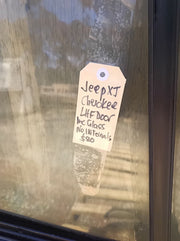 Jeep XJ
Cherokee
LHF Door
inc Glass
No Internals
$80